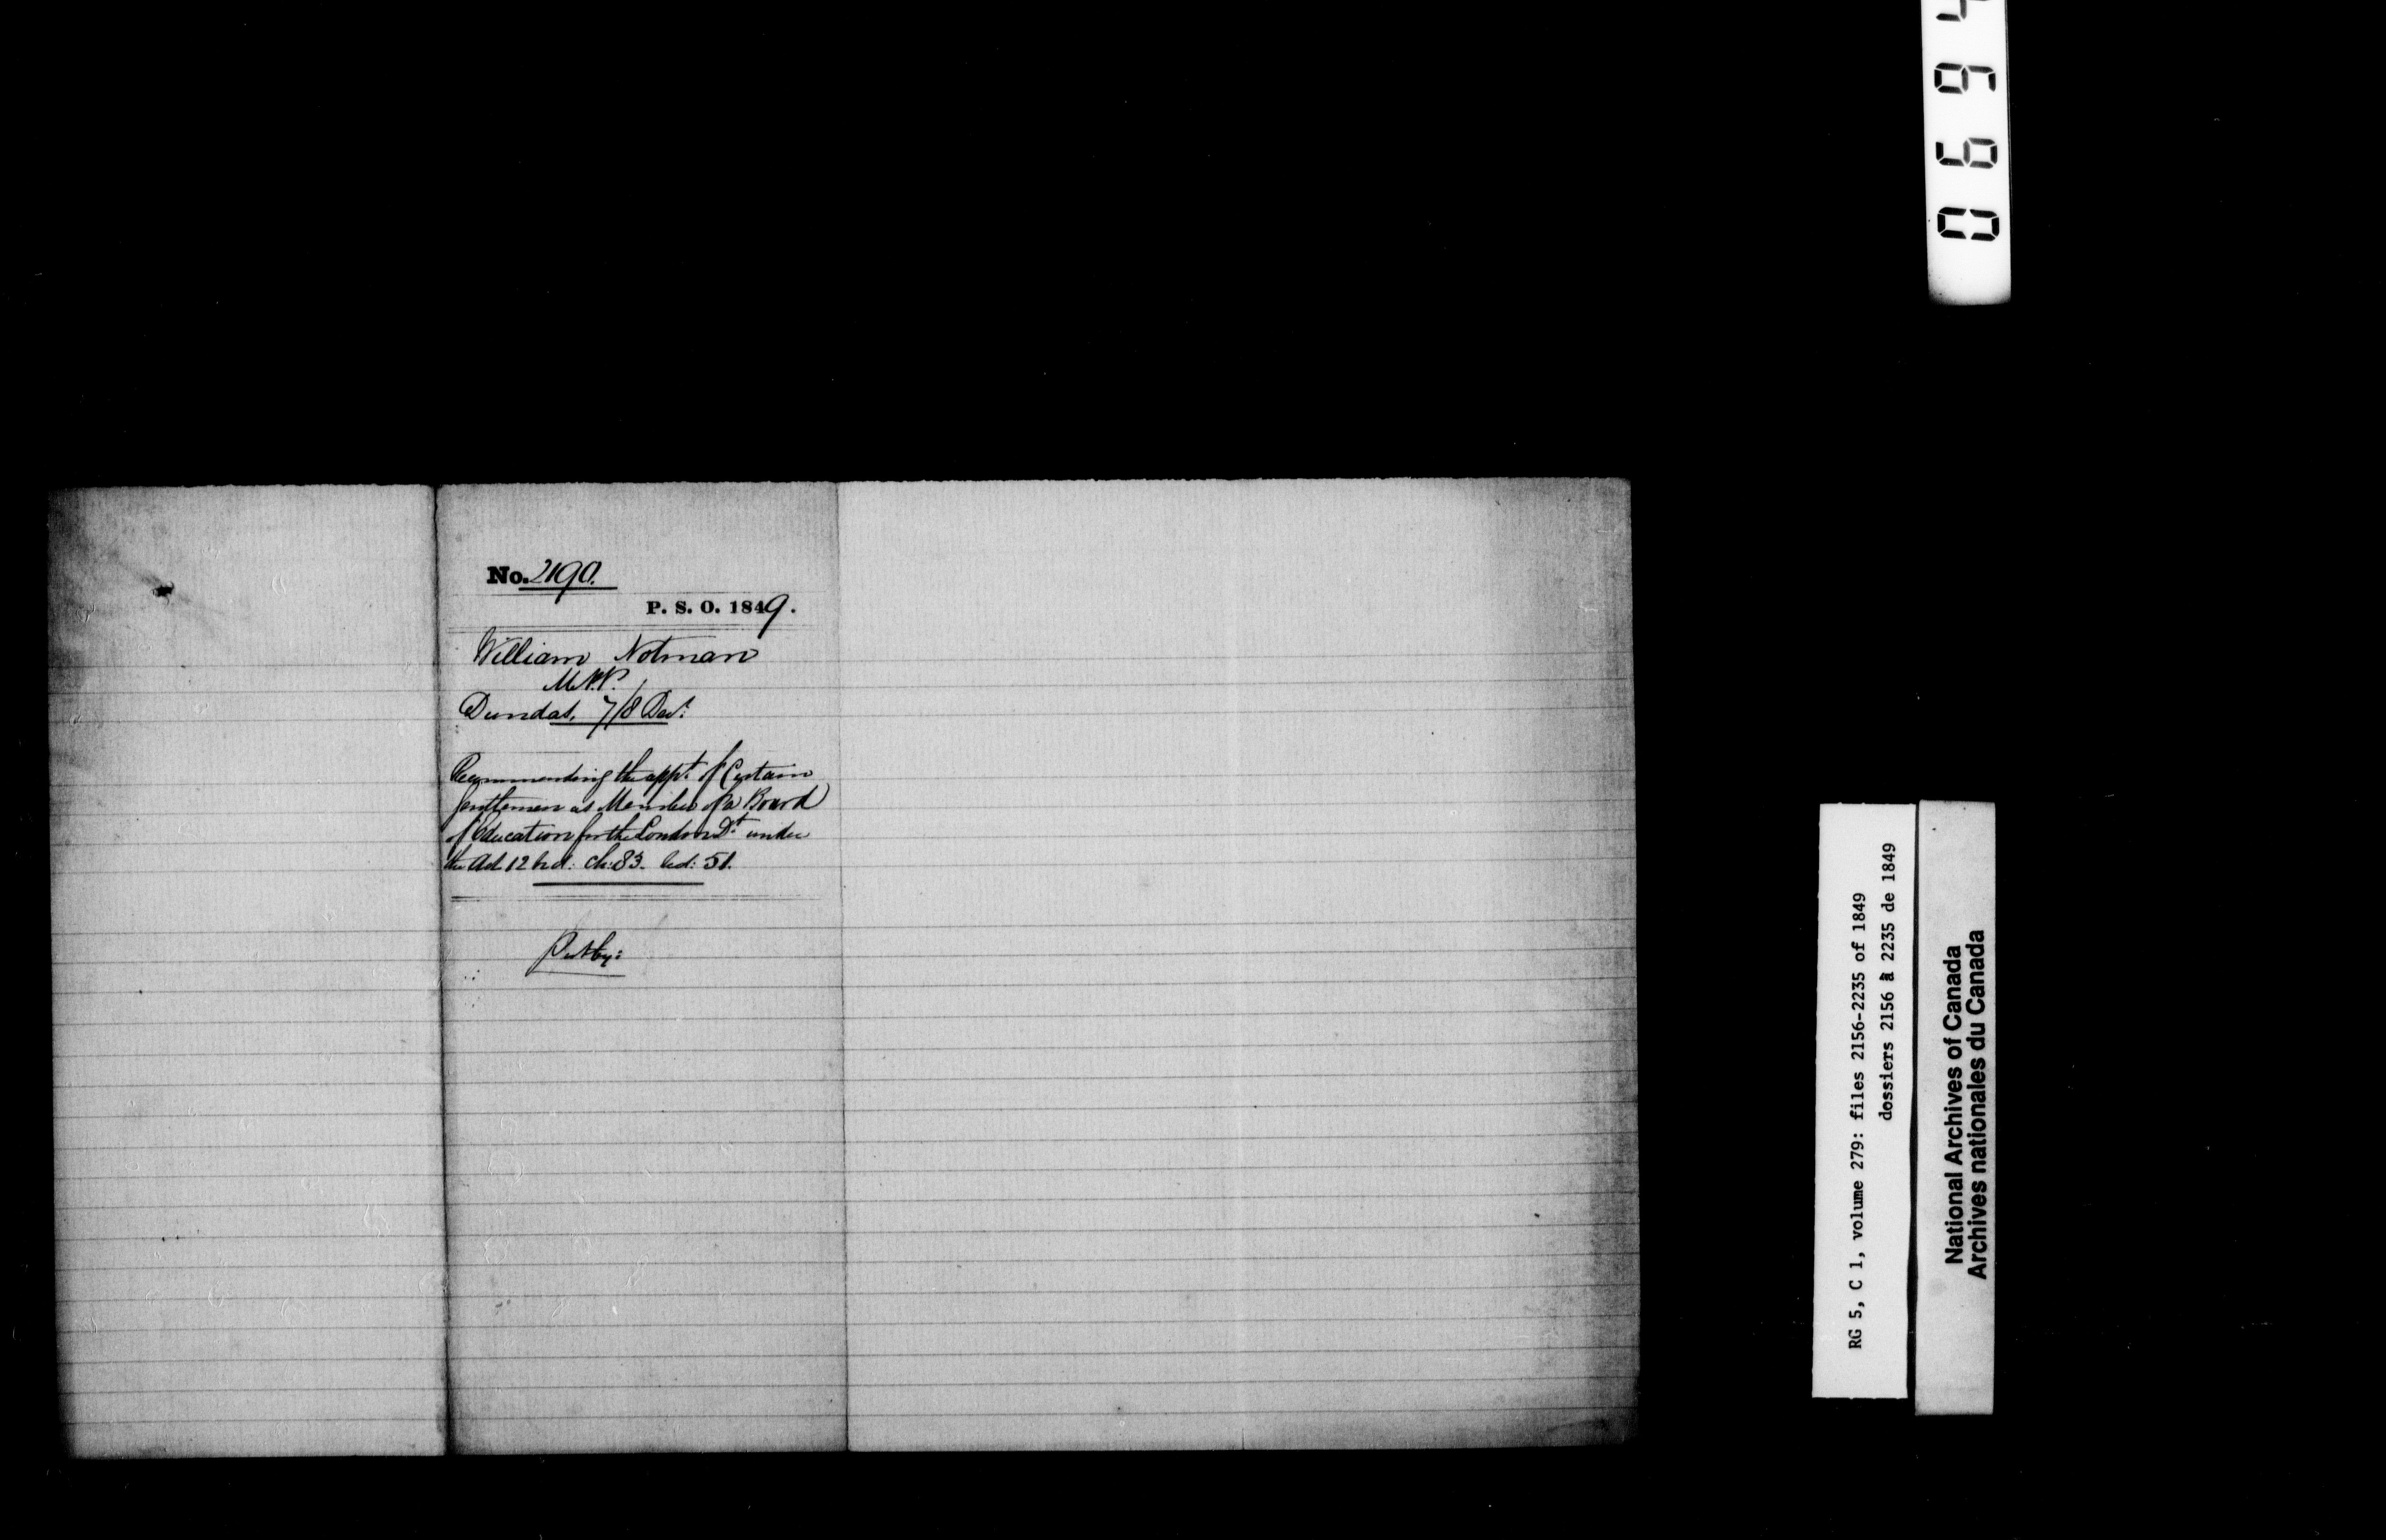 No. 2190.
P. S. O. 1849.
William Notman
M.P.P.
Dundas, 7/8 Decr:
Recommending the appt. of Certain
Gentlemen as Members of a Board
of Education for the London Dt. under
the Act 12 Vict: ch: 83. Sec: 51.
0694
RG 5, C 1, volume 279: files 2156-2235 of 1849
dossiers 2156 à 2235 de 1849
National Archives of Canada
Archives nationales du Canada